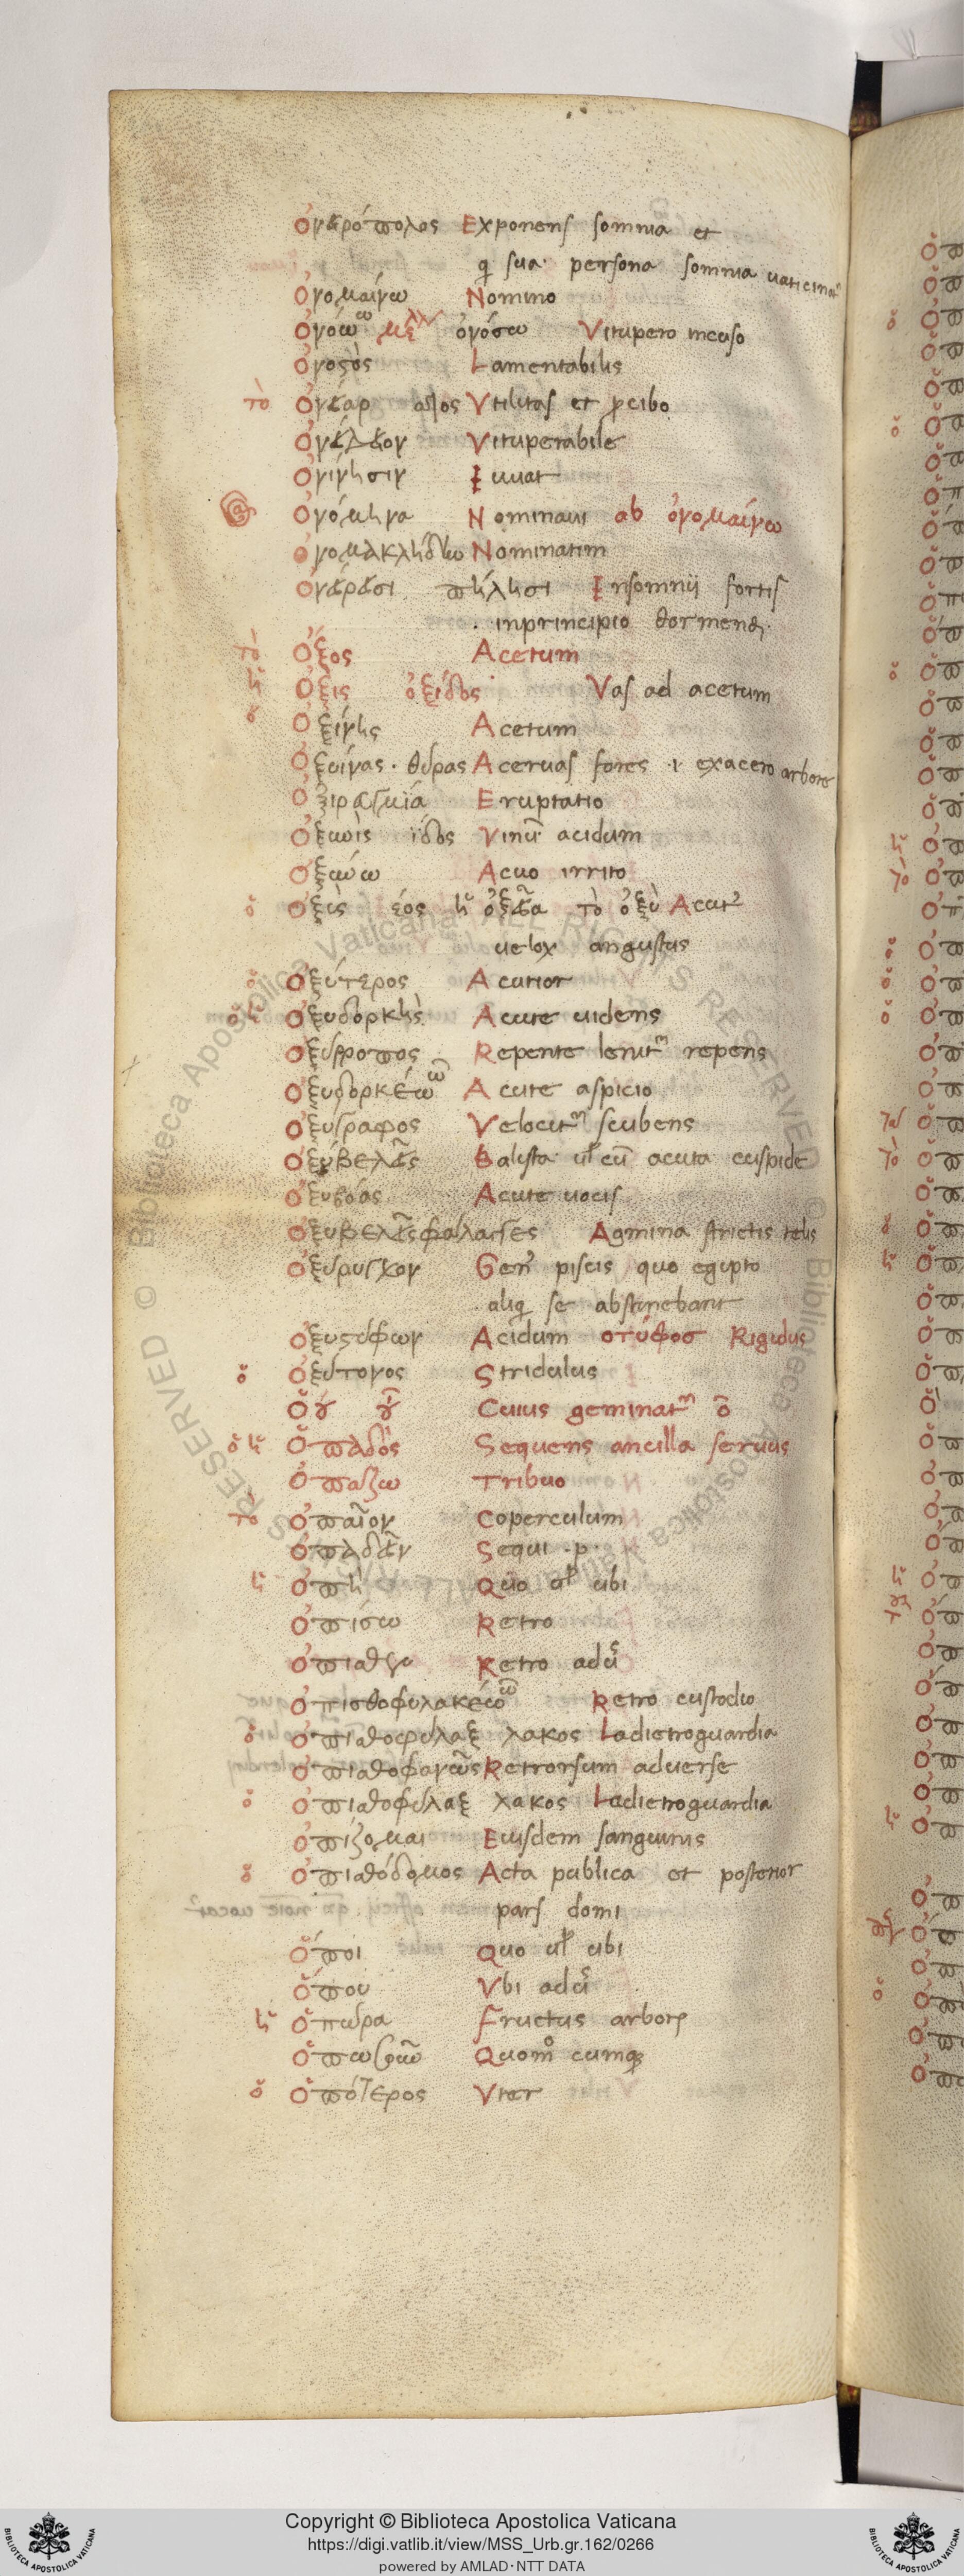 Ὀνειρόπολος Exponens somnia et
qͥ sua persona somnia vaticinatͬ
Ὀνομαίνω Nomino
Ὀνόω ῶ μελλ ὀνόσω Vitupero incuso
Ὀνοςὸς Lamentabilis
τὸ Ὀνειαρ ατος Vtilitas et ꝓ cibo
Ὀνείδειον Vituperabile
Ὀνίνησιν Iuuat
Ὀνόμηνα Nominaui ab ὀνομαίνω
Ὀνομακλήδην Nominatim
Ὀνείρασι πύλησι Insomnij fortis
inprincipio dormend
τὸ Ὄξος Acetum
ἡ Ὀξὶς ὀξίδος Vas ad acetum
ὁ Ὀξίνης Acetum
Ὀξείνας · θύρας Aceruas fores · i exacero arbore
Ὀξιρεγμϊά Eruptatio
Ὀξωὶς ϊδος Vinū acidum
Ὀξύνω Acuo irrito
ὁ Ὀξὺς έος ἡ ὀξεῖα τὸ ὀξὺ Acutꝰ
uelox angustus
ὁ Ὀξύτερος Acutior
ὁ ἡ Ὀξυδορκὴς Acute uidens
Ὀξύρροπος Repente leuitͬ repens
Ὀξυδορκέω ῶ Acute aspicio
Ὀξυγραφος Velocitͬ scribens
Ὀξυβελεῖς Balista ul cū acuta cuspide
Ὀξυβόας Acute uocis
Ὀξυβελεῖς φάλαγγες Agmina strictis telis
Ὀξύρυγχον Genꝰ piscis quo egipto
aliqͥ se abstinebant
Ὀξυςύφων Acidum στύφοσ Rigidus
ὁ Ὀξύτονος Stridulus
Ὄου οὗ Cuius geminatͬ ο
ὁ ἡ Ὀπαδὸς Sequens ancilla seruus
Ὀπάζω Tribuo
τὸ Ὀπαῖον Coperculum
Ὀπαδεῖν Sequi · p ·
ἡ Ὀπὴ Quo ul ubi
Ὀπίσω Retro
Ὄπισθεν Retro adū
Ὀπισθοφυλακέω ῶ Retro custodio
ὁ Ὀπισθοφύλαξ λακος Ladietroguardia
Ὀπισθοφανῶς Retrorsum aduerse
ὁ Ὀπισθοφύλαξ λακος Ladietroguardia
Ὀπίζομαι Eiusdem sanguinis
ὁ Ὀπισθόδομος Acta publica et posterior
pars domi
Ὅποι Quo ul ubi
Ὅπου Vbi adū
ἡ Ὀπώρα Fructus arboꝝ
Ὁπωσοῦν Quomͦ cumqꝫ
ὁ Ὁπότερος Vter
Copyright © Biblioteca Apostolica Vaticana
https://digi.vatlib.it/view/MSS_Urb.gr.162/0266
powered by AMLAD·NTT DATA